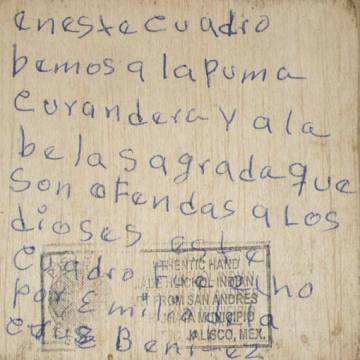 eneste cuadro
bemos a la puma
curandera y a la
bela sagrada que
son ofendas a los
dioses este
cuadro
por Emilia
Benitez
THENTIC HAND
ADE HUICHOL INDIAN
FROM SAN ANDRES
MUNICIPIO
JALISCO, MEX.